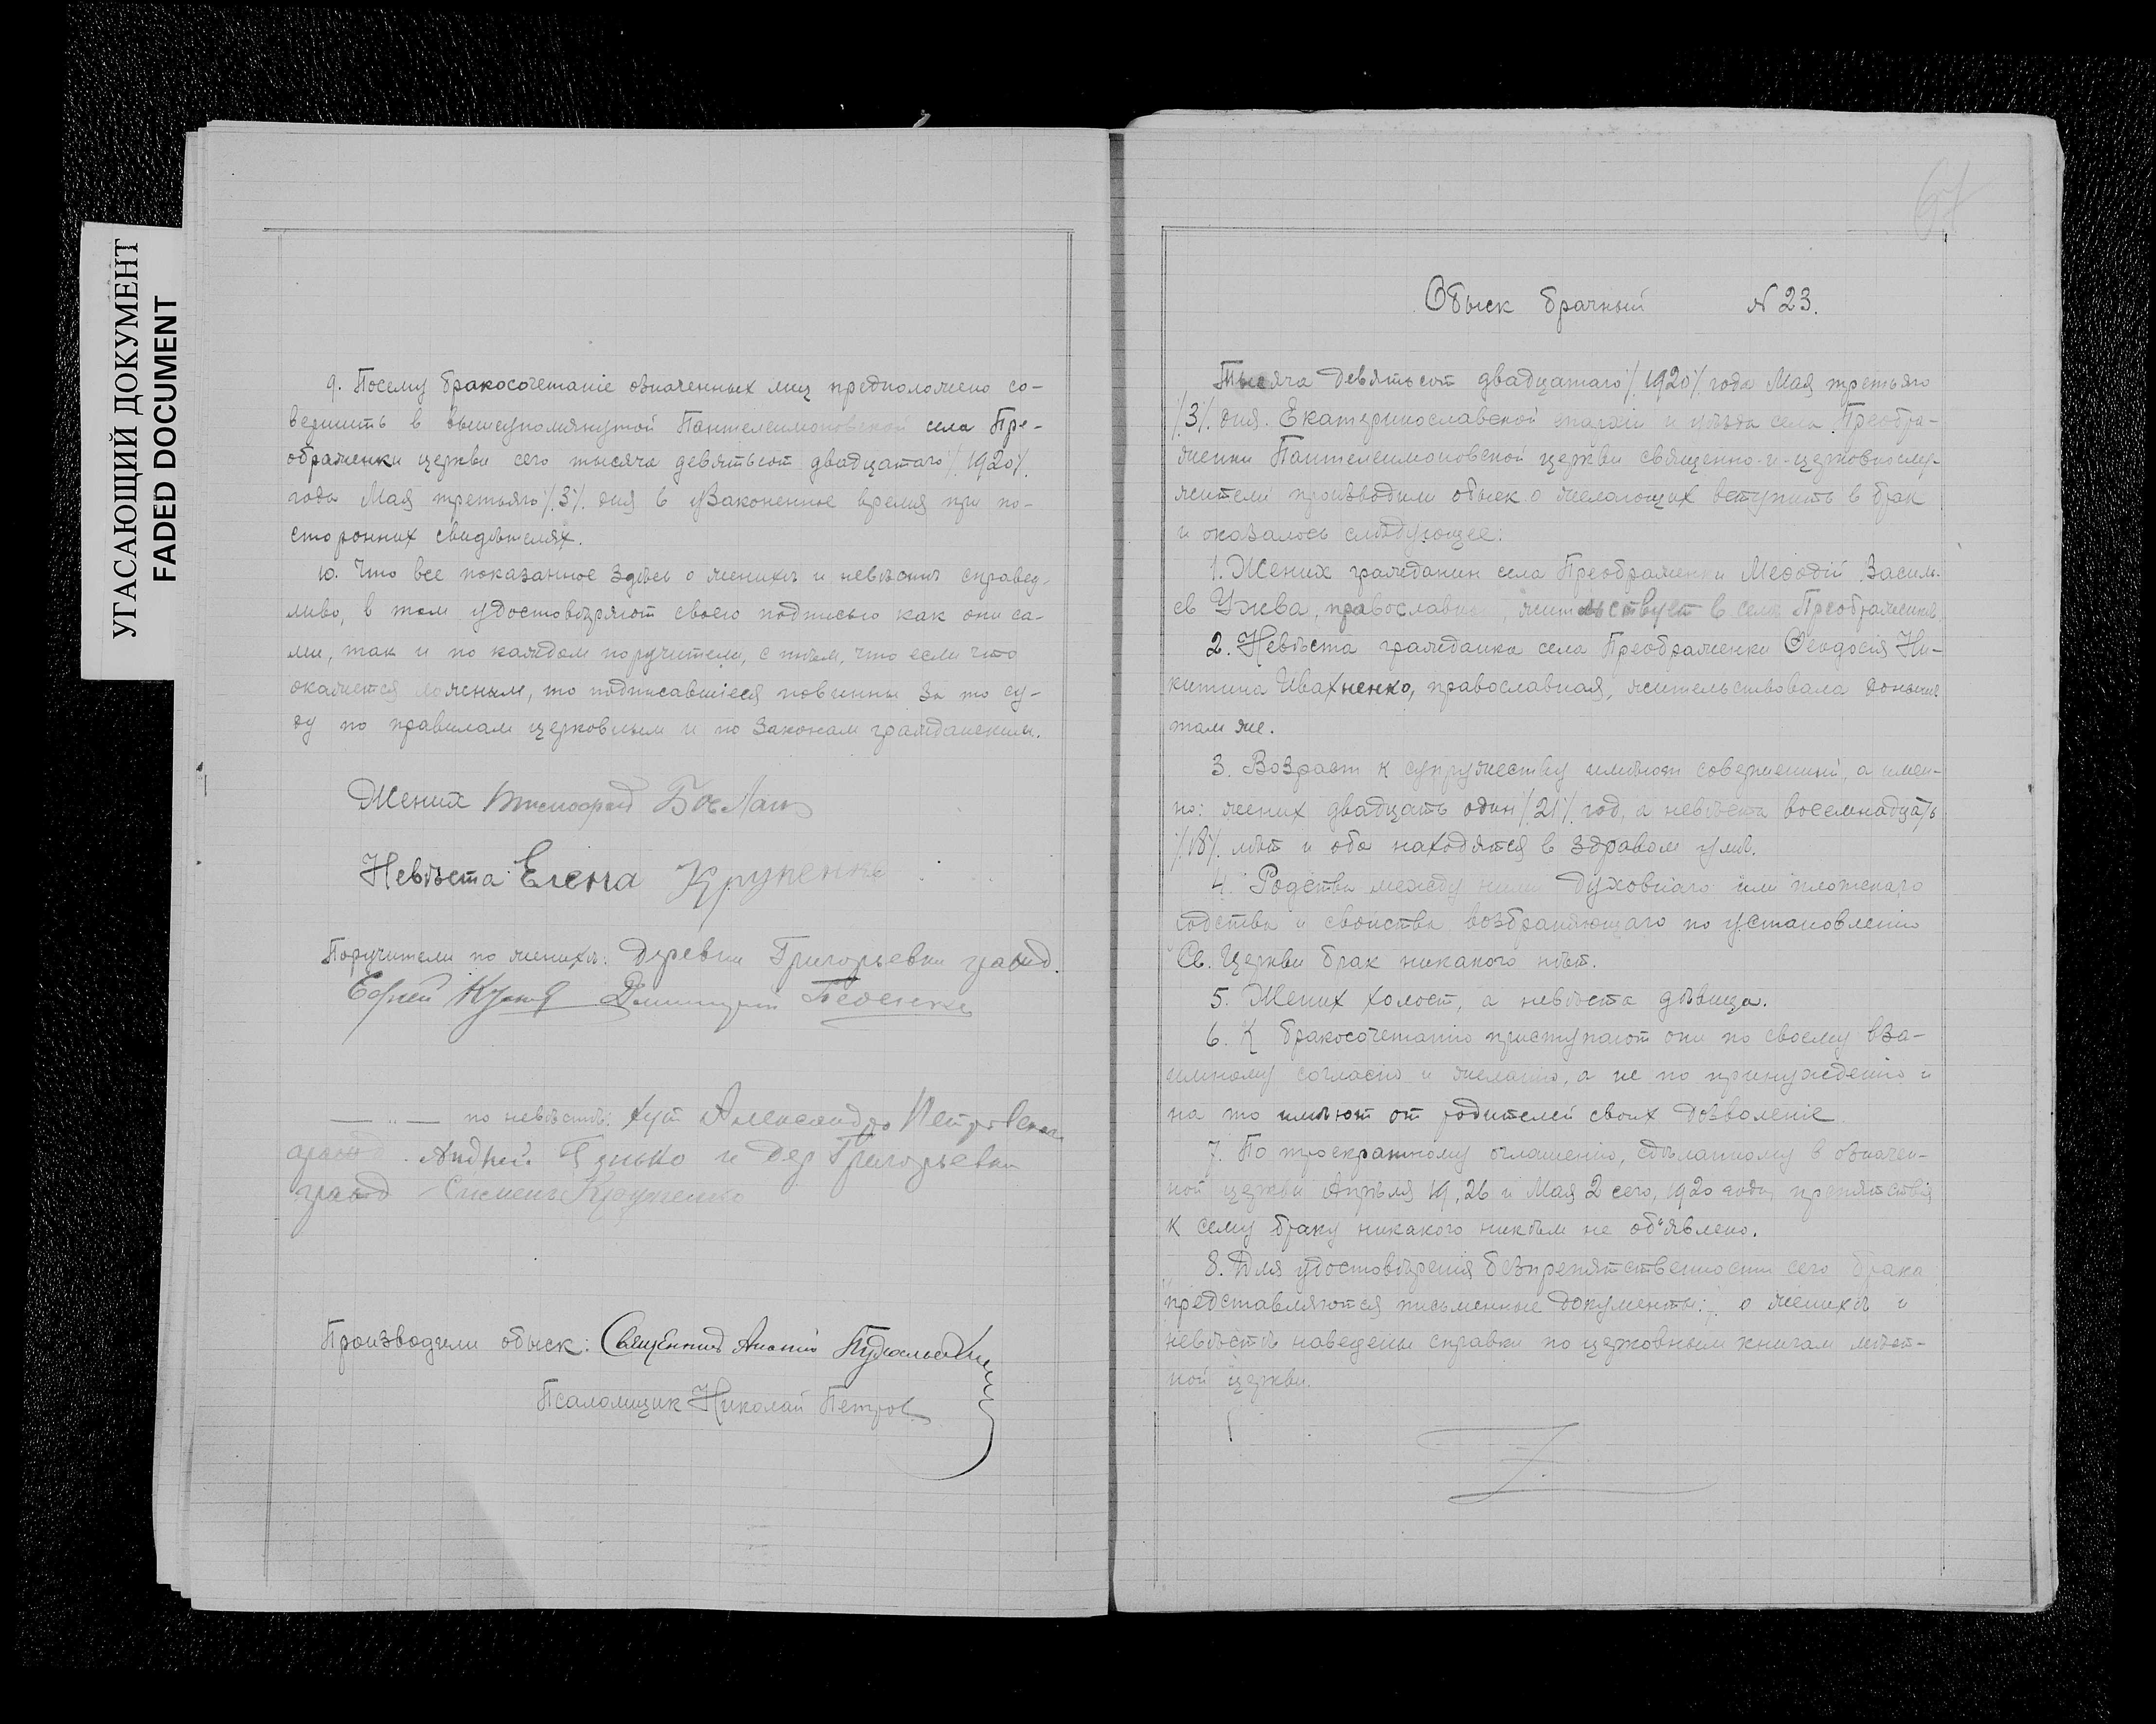 УГАСАЮЩИЙ ДОКУМЕНТ
FADED DOCUMENT
9. Посему бракосочетаніе означенных лиц предположено со-
вершить в вышеупомянутой Пантелеимоновской села Пре-
ображенки церкви сего тысяча девятьсот двадцатаго /.1920/.
года Мая третьяго /.3/. дня в узаконенное время при по-
сторонних свидѣтелях.
10. Что все показанное здѣсь о женихѣ и невѣстѣ справед-
ливо, в том удостовѣряют своею подписью как они са-
ми, так и по каждом поручители, с тѣм, что если что
окажется ложным, то подписавшіеся повинны за то су-
ду по правилам церковным и по законам гражданским.
Жених
Невѣста Елена Крупенко
Поручители по женихѣ: Деревни Григорьевки гражд.
Димитрий
—„— по невѣстѣ: хут Александро
гражд. Андрей и дер Григорьевки
гражд
Производили обыск: Священник
Псаломщик Николай Петров
67
Обыск брачный № 23.
Тысяча девятьсот двадцатаго /.1920/. года Мая третьяго
/.3/. дня. Екатеринославской епархіи и уѣзда села Преобра-
женки Пантелеимоновской церкви священно-и-церковнослу-
жители производили обыск о желающих вступить в брак
и оказалось слѣдующее:
1. Жених гражданин села Преображенки Меѳодій
ев Ужва, православный, жительствует в селе Преображенкѣ.
2. Невѣста гражданка села Преображенки Ѳеодосія Ни-
китина Ивахненко, православная, жительствовала донынѣ
там же.
3. Возраст к супружеству имѣют совершенный, а имен-
но: жених двадцать один /.21/. год, а невѣста восемнадцать
/.18/. лѣт и оба находятся в здравом умѣ.
4. Родства между ними духовнаго или плотскаго
родства и свойства возбраняющаго по установленію
Св. Церкви брак никакого нѣт.
5. Жених холост, а невѣста дѣвица.
6. К бракосочетанію приступают они по своему вза-
имному согласію и желанію, а не по принужденію и
на то имѣют от родителей своих дозволеніе.
7. По троекратному оглашенію, сдѣланному в означен-
ной церкви Апрѣля 19, 26 и Мая 2 сего, 1920 года, препятствія
к сему браку никакого никѣм не об'явлено.
8. Для удостовѣренія безпрепятственности сего брака
представляются письменные документы: о женихѣ и
невѣстѣ наведены справки по церковным книгам мѣст-
ной церкви.